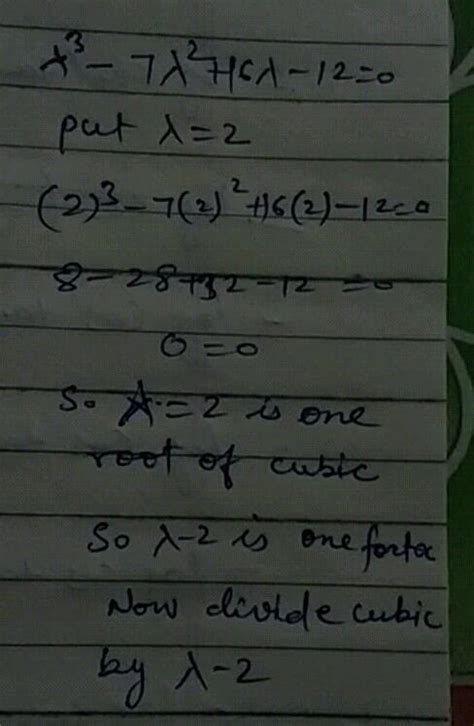 λ³ - 7λ² + 16λ - 12 = 0
put λ = 2
(2)³ - 7(2)² + 16(2) - 12 = 0
8 - 28 + 32 - 12 = 0
0 = 0
So λ = 2 is one
root of cubic
So λ-2 is one factor
Now divide cubic
by λ-2